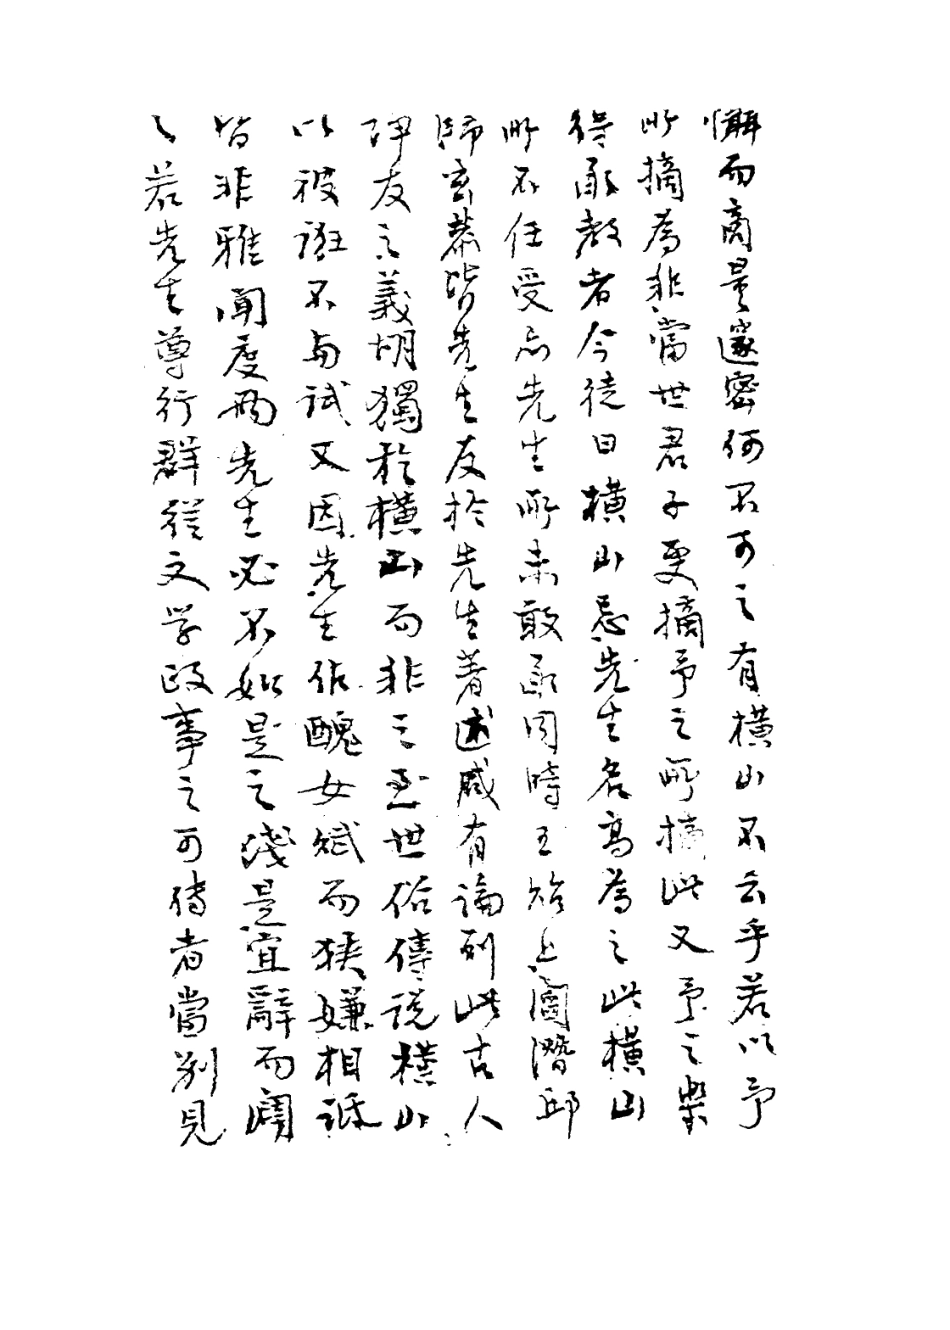 懈而商量邃密何不可之有橫山不云乎若以予
所摘為非當世君子更摘予之所摘此又予之樂
得承教者今徒曰橫山忌先生名高為之此橫山
所不任受而先生所未敢承同時王於上閻潛邱
歸玄恭皆先生友於先生著述咸有論列此古人
研友之義胡獨於橫山而非之至世俗傳說橫山
以被謗不與試又因先生作醜女賦而狹嫌相詆
皆非雅聞度兩先生必不如是之淺是宜辭而闢
之若先生尊行群從文学政事之可傳者當別見